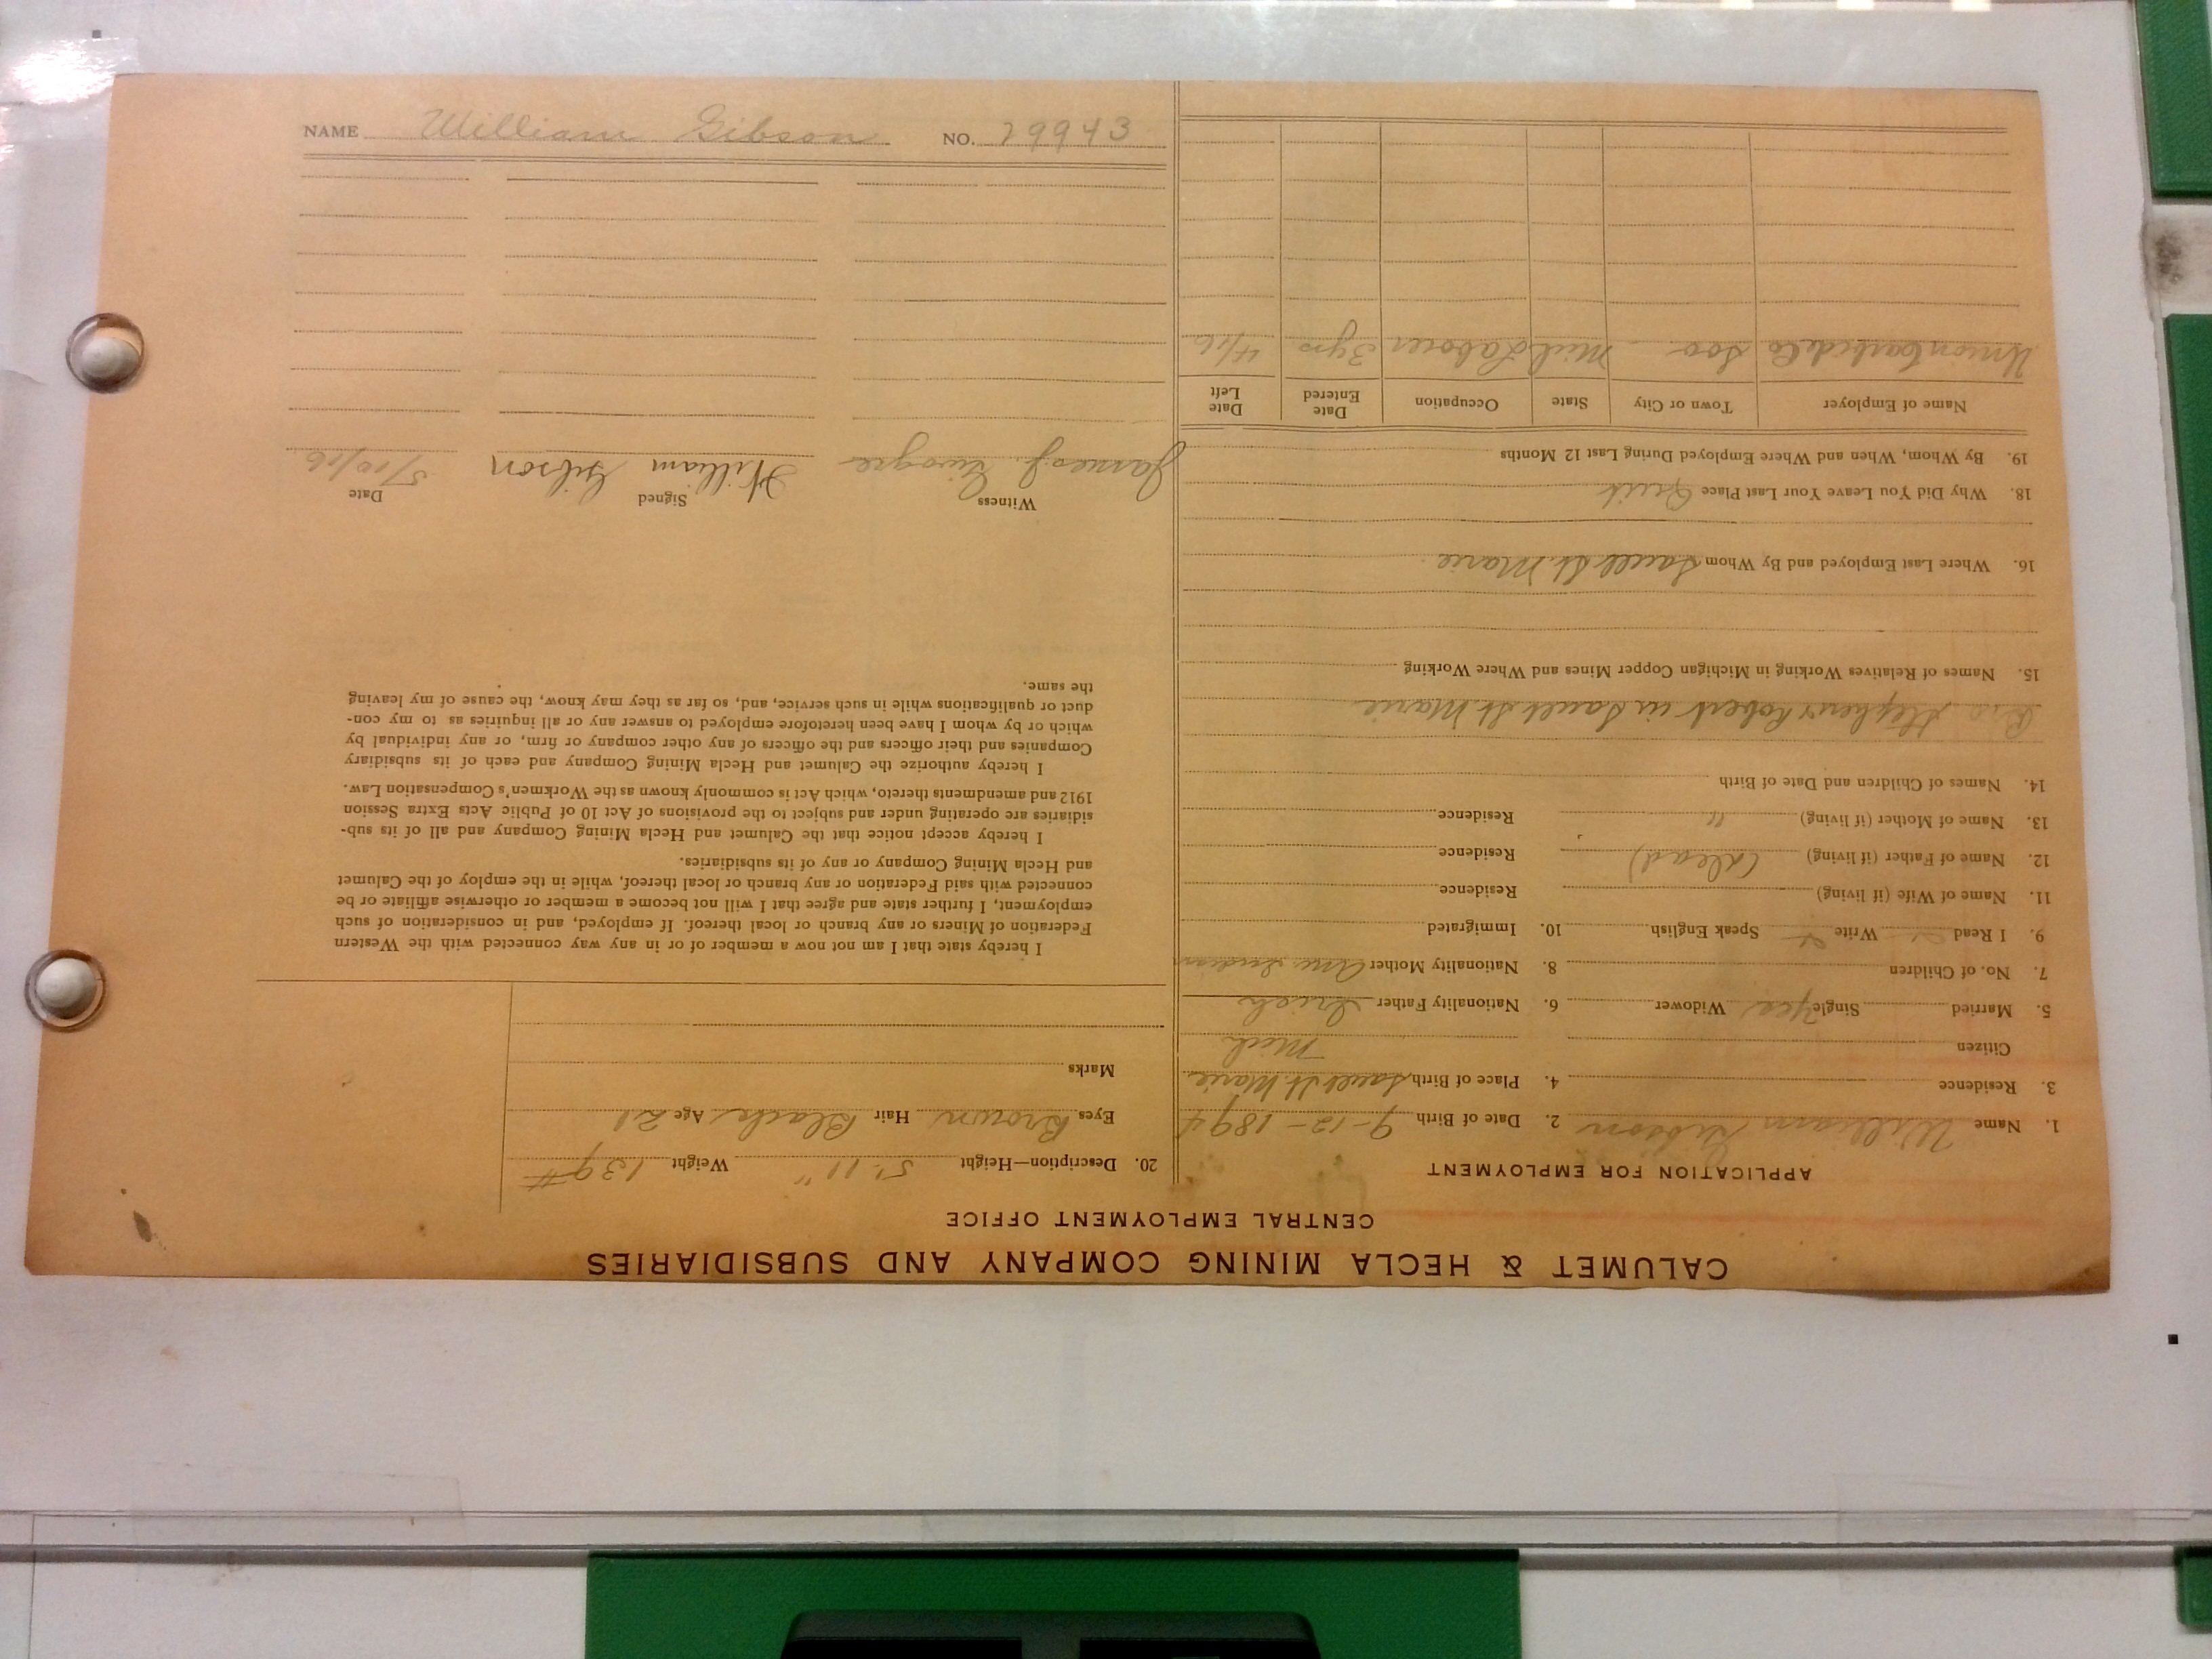 CALUMET & HECLA MINING COMPANY AND SUBSIDIARIES
CENTRAL EMPLOYMENT OFFICE
APPLICATION FOR EMPLOYMENT
1. Name William Gibson 2. Date of Birth 9-12-1894
3. Residence 4. Place of Birth Sault St. Marie
Citizen Mich
5. Married Single Yes Widower 6. Nationality Father Irish
7. No. of Children 8. Nationality Mother Am. Indian
9. I Read Write Speak English 10. Immigrated
11. Name of Wife (if living) Residence
12. Name of Father (if living) (dead) Residence
13. Name of Mother (if living) " Residence
14. Names of Children and Date of Birth
Bro Stephen & Robert in Sault St. Marie
15. Names of Relatives Working in Michigan Copper Mines and Where Working
16. Where Last Employed and By Whom Sault St. Marie
18. Why Did You Leave Your Last Place Quit
19. By Whom, When and Where Employed During Last 12 Months
Name of Employer Town or City State Occupation Date Entered Date Left
Union Carbide Co Soo Mich Laborer 3 yrs 4/16
20. Description—Height 5' 11" Weight 139 #
Eyes Brown Hair Black Age 21
Marks
I hereby state that I am not now a member of or in any way connected with the Western
Federation of Miners or any branch or local thereof. If employed, and in consideration of such
employment, I further state and agree that I will not become a member or otherwise affiliate or be
connected with said Federation or any branch or local thereof, while in the employ of the Calumet
and Hecla Mining Company or any of its subsidiaries.
I hereby accept notice that the Calumet and Hecla Mining Company and all of its sub-
sidiaries are operating under and subject to the provisions of Act 10 of Public Acts Extra Session
1912 and amendments thereto, which Act is commonly known as the Workmen's Compensation Law.
I hereby authorize the Calumet and Hecla Mining Company and each of its subsidiary
Companies and their officers and the officers of any other company or firm, or any individual by
which or by whom I have been heretofore employed to answer any or all inquiries as to my con-
duct or qualifications while in such service, and, so far as they may know, the cause of my leaving
the same.
Witness Signed Date
James J. William Gibson 5/10/16
NAME William Gibson NO. 29943